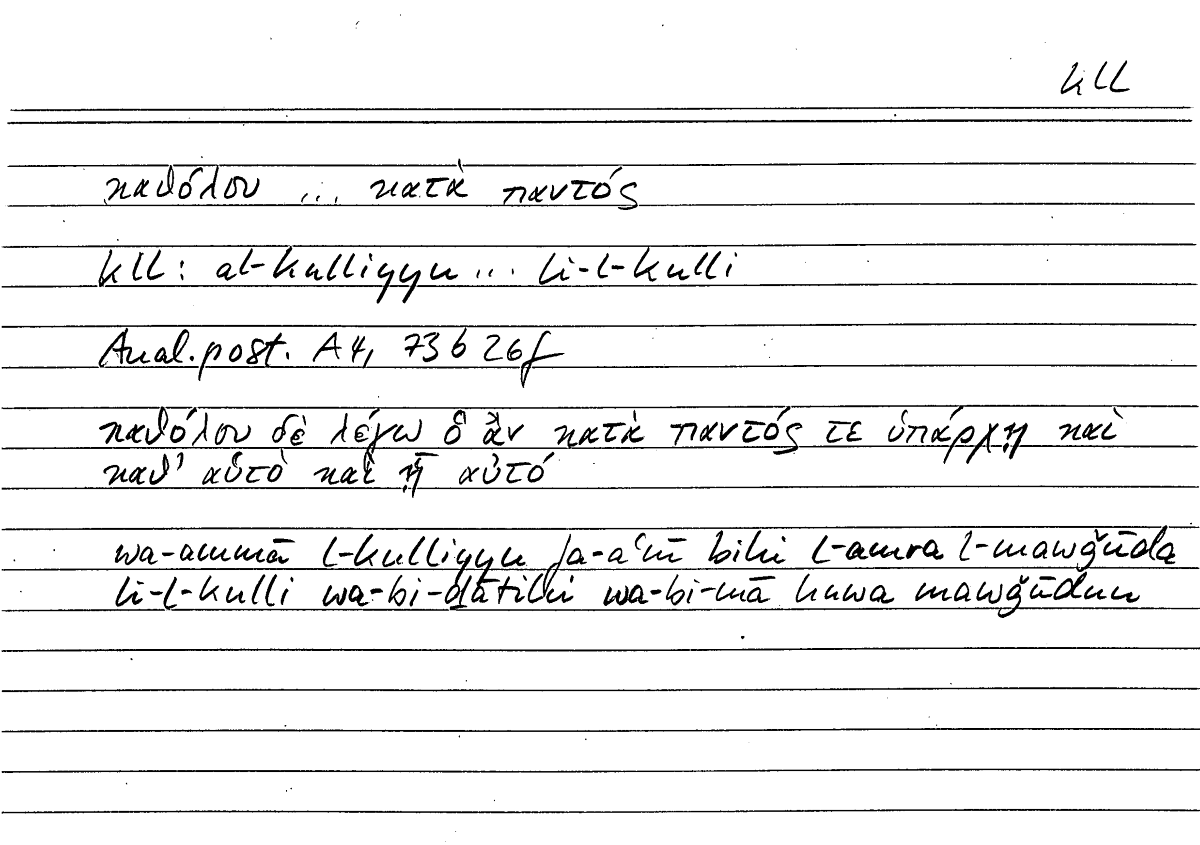 kll
καθόλου ... κατὰ παντός
kll: al-kulliyyu ... li-l-kulli
Anal.post. A4, 73 b 26f
καθόλου δὲ λέγω ὃ ἂν κατὰ παντός τε ὑπάρχῃ καὶ
καθ' αὑτὸ καὶ ᾗ αὐτό
wa-ammā l-kulliyyu fa-aʿnī bihī l-amra l-mawǧūda
li-l-kulli wa-bi-ḏātihī wa-bi-mā huwa mawǧūdun